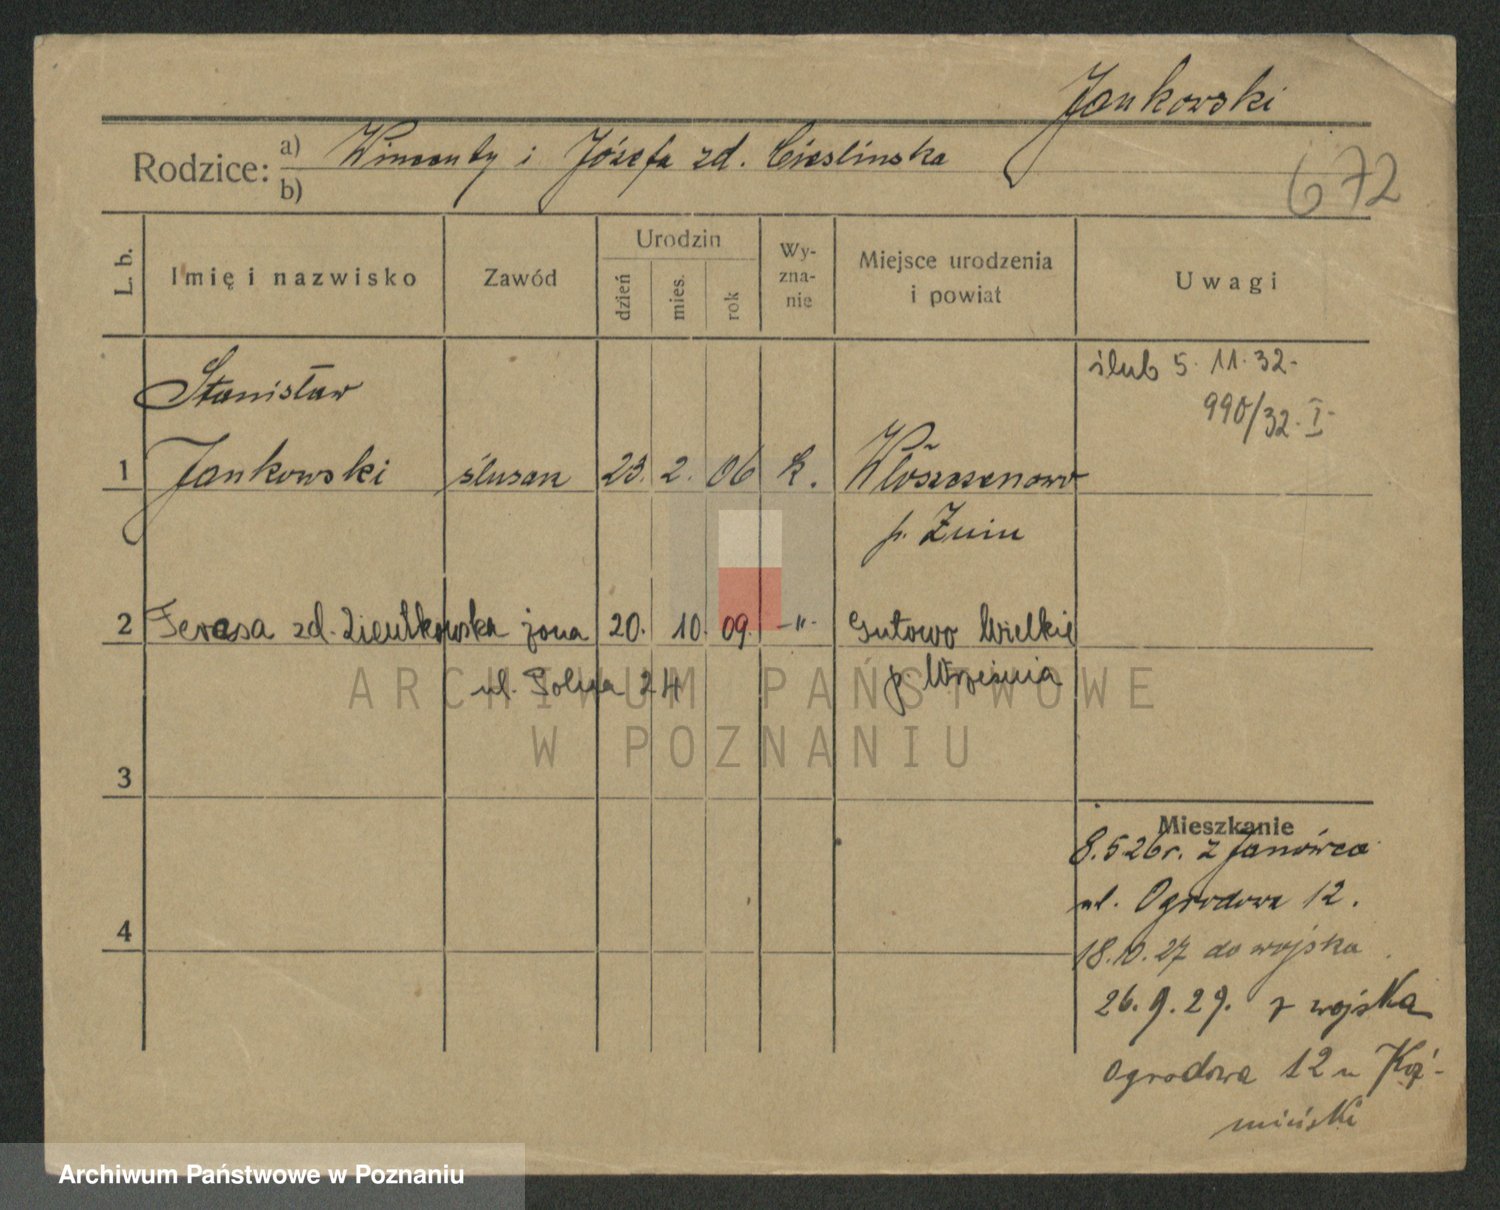 Jankowski
Rodzice: a) Wincenty i Józefa zd. Cieślinska
b)
672
L. b.
Imię i nazwisko
Zawód
Urodzin
dzień
mies.
rok
Wy-
zna-
nie
Miejsce urodzenia
i powiat
Uwagi
ślub 5. 11. 32.
990/32. I
Stanisław
1 Jankowski ślusarz 23. 2. 06 k. Włoszczenowo
p. Żnin
2 Teresa zd. Zientkowska żona 20. 10. 09. -"- Gutowo Wielkie
ul. Polna 24 p. Września
ARCHIWUM PAŃSTWOWE
W POZNANIU
3
Mieszkanie
8.5 26 r. z Janówca
ul. Ogrodowa 12.
4
18.10.27 do wojska
26.9.29. z wojska
Ogrodowa 12 u Koź-
miński
Archiwum Państwowe w Poznaniu